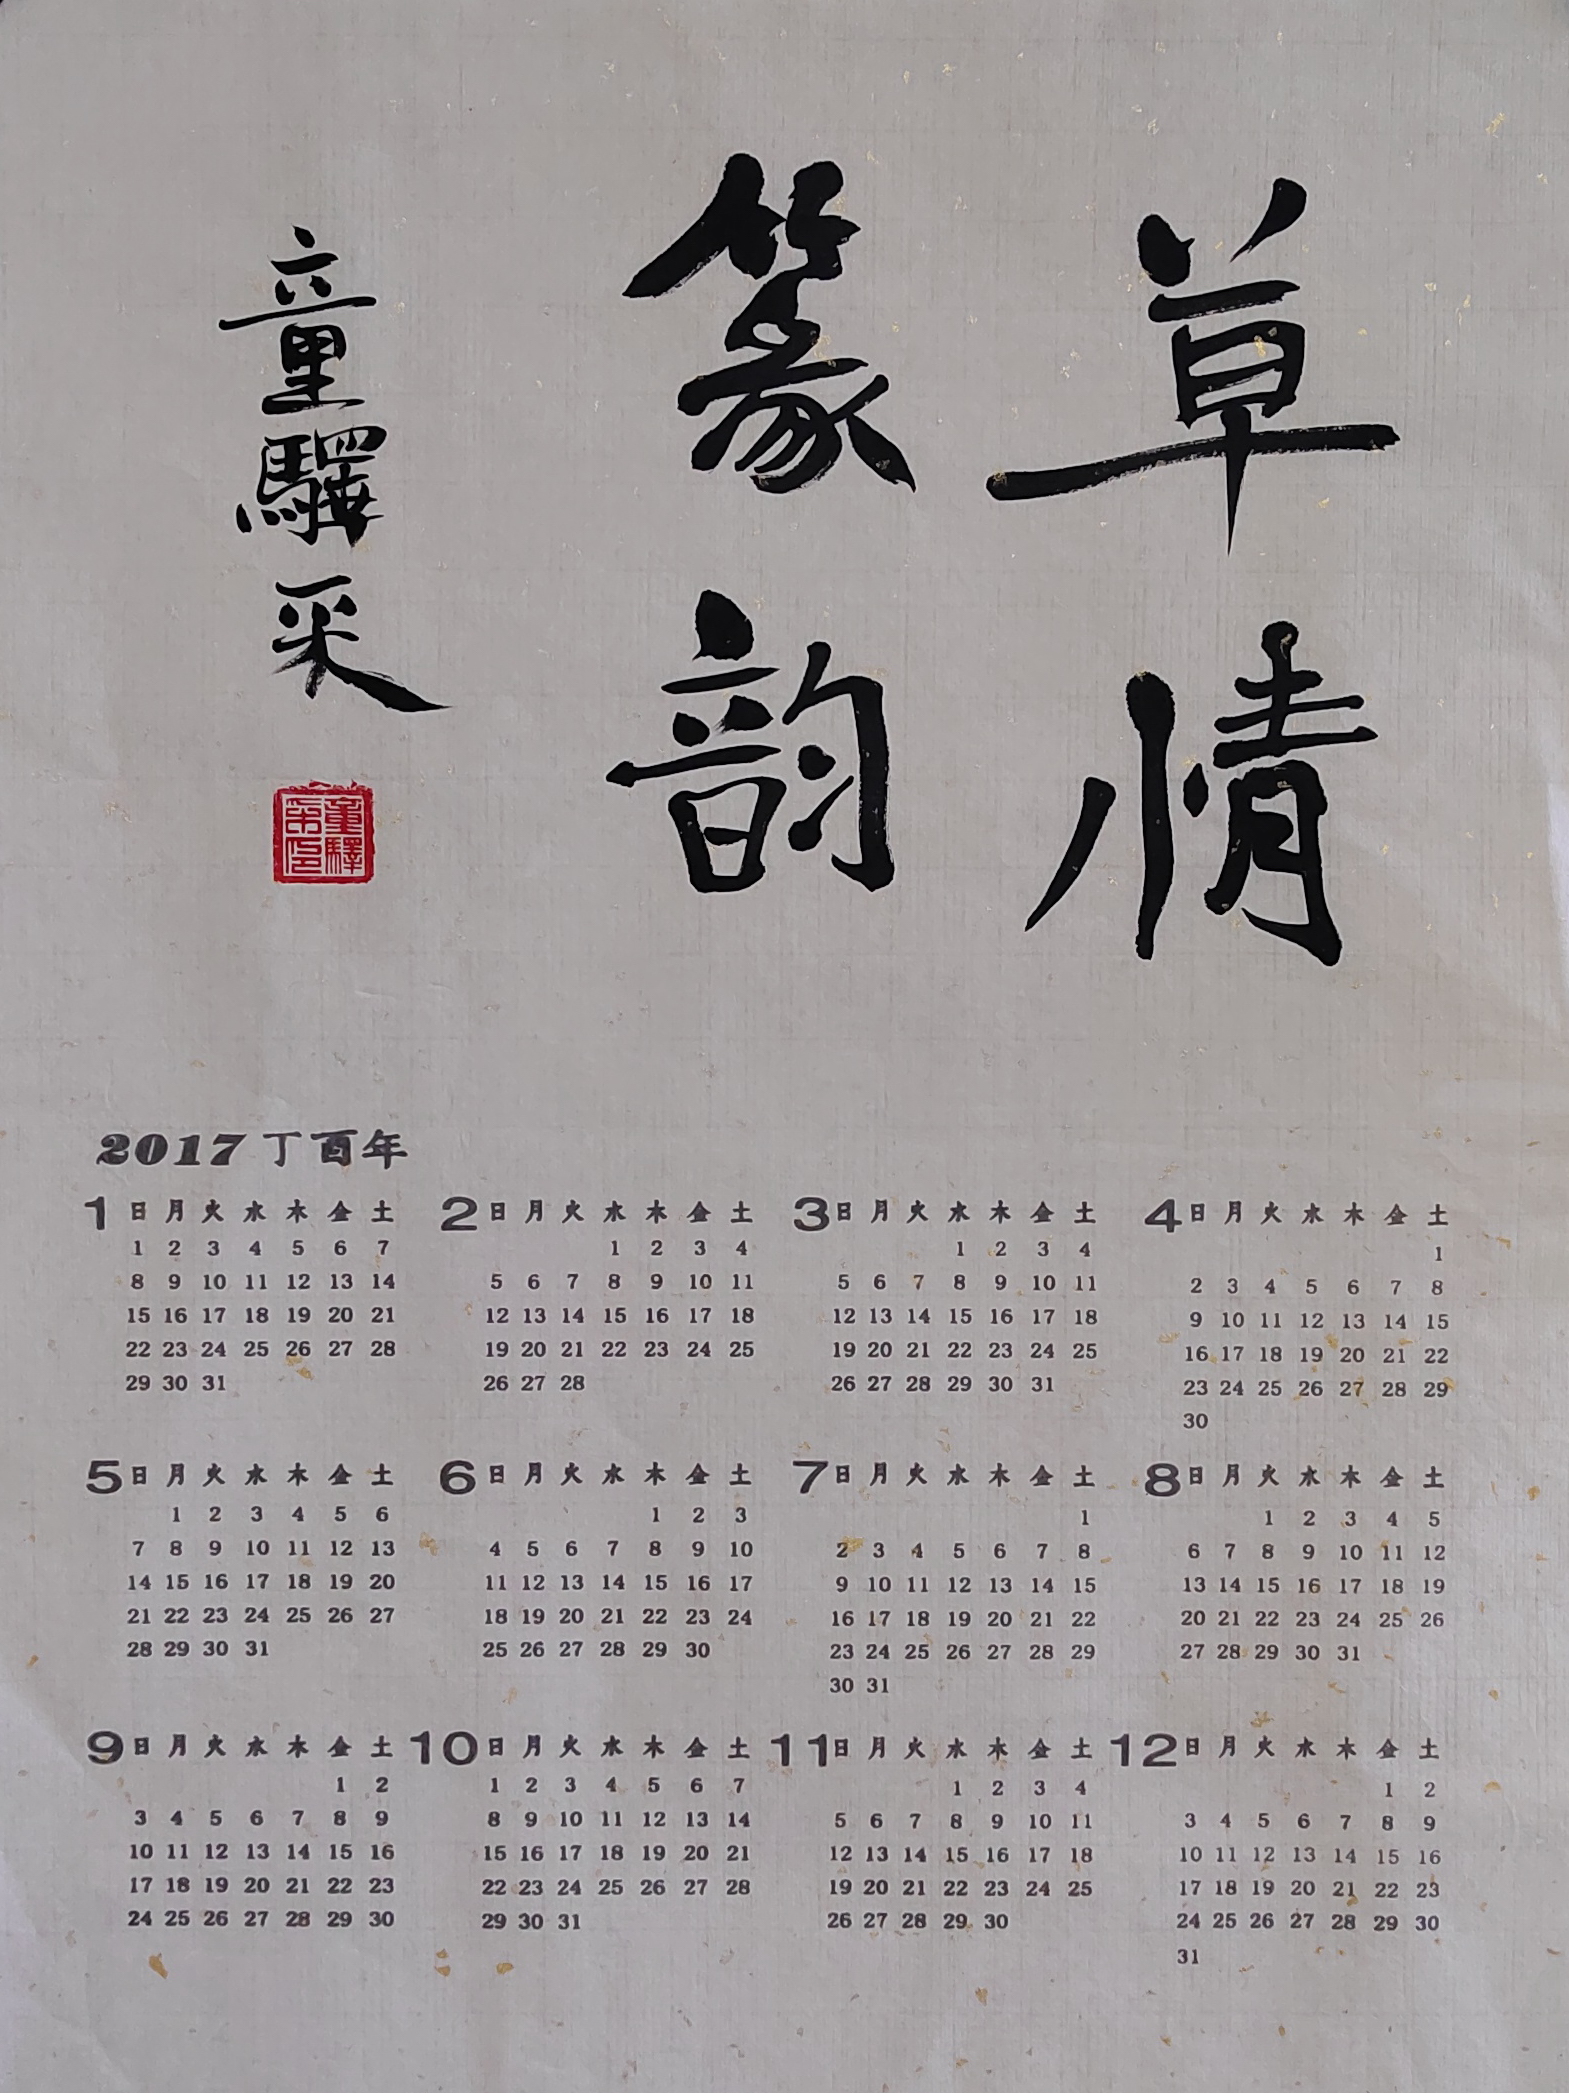 草情
篆韵
童驛采
童驛
采印
2017 丁酉年
1 日 月 火 水 木 金 土
1 2 3 4 5 6 7
8 9 10 11 12 13 14
15 16 17 18 19 20 21
22 23 24 25 26 27 28
29 30 31
2 日 月 火 水 木 金 土
1 2 3 4
5 6 7 8 9 10 11
12 13 14 15 16 17 18
19 20 21 22 23 24 25
26 27 28
3 日 月 火 水 木 金 土
1 2 3 4
5 6 7 8 9 10 11
12 13 14 15 16 17 18
19 20 21 22 23 24 25
26 27 28 29 30 31
4 日 月 火 水 木 金 土
1
2 3 4 5 6 7 8
9 10 11 12 13 14 15
16 17 18 19 20 21 22
23 24 25 26 27 28 29
30
5 日 月 火 水 木 金 土
1 2 3 4 5 6
7 8 9 10 11 12 13
14 15 16 17 18 19 20
21 22 23 24 25 26 27
28 29 30 31
6 日 月 火 水 木 金 土
1 2 3
4 5 6 7 8 9 10
11 12 13 14 15 16 17
18 19 20 21 22 23 24
25 26 27 28 29 30
7 日 月 火 水 木 金 土
1
2 3 4 5 6 7 8
9 10 11 12 13 14 15
16 17 18 19 20 21 22
23 24 25 26 27 28 29
30 31
8 日 月 火 水 木 金 土
1 2 3 4 5
6 7 8 9 10 11 12
13 14 15 16 17 18 19
20 21 22 23 24 25 26
27 28 29 30 31
9 日 月 火 水 木 金 土
1 2
3 4 5 6 7 8 9
10 11 12 13 14 15 16
17 18 19 20 21 22 23
24 25 26 27 28 29 30
10 日 月 火 水 木 金 土
1 2 3 4 5 6 7
8 9 10 11 12 13 14
15 16 17 18 19 20 21
22 23 24 25 26 27 28
29 30 31
11 日 月 火 水 木 金 土
1 2 3 4
5 6 7 8 9 10 11
12 13 14 15 16 17 18
19 20 21 22 23 24 25
26 27 28 29 30
12 日 月 火 水 木 金 土
1 2
3 4 5 6 7 8 9
10 11 12 13 14 15 16
17 18 19 20 21 22 23
24 25 26 27 28 29 30
31